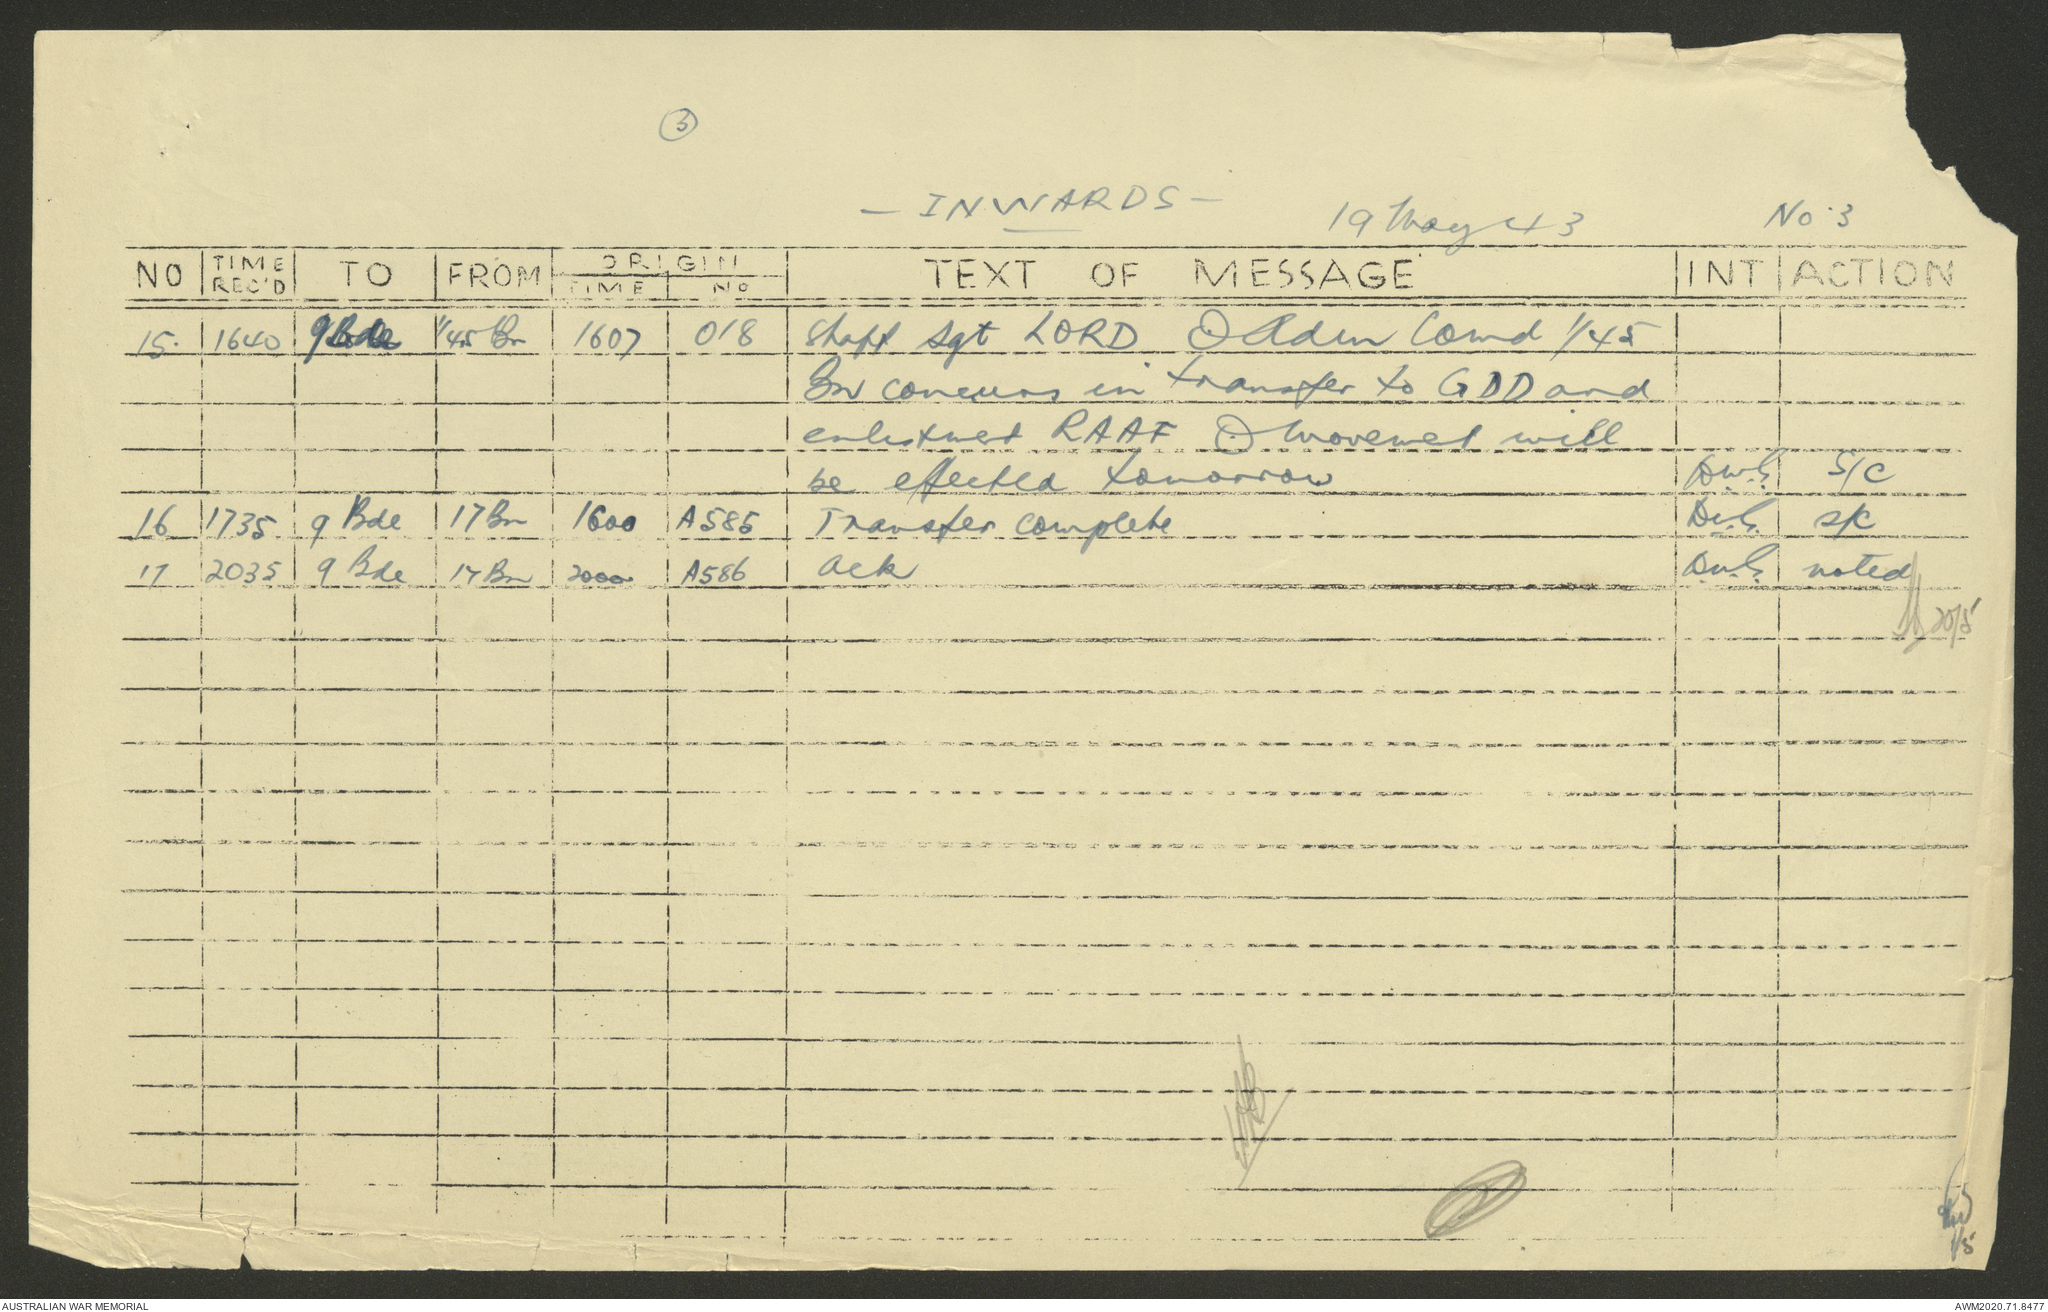 3
- INWARDS -
19 May 43
No. 3
NO TIME REC'D TO FROM ORIGIN TIME NO TEXT OF MESSAGE INT ACTION
15. 1640 9 Bde 1/45 Bn 1607 018 Staff Sgt LORD ⊙ Admin Comd 1/45
Bn concurs in transfer to GDD and
enlistment RAAF ⊙ Movement will
be effected tomorrow D.W.G. S/C
16 1735 9 Bde 17 Bn 1600 A585 Transfer complete D.W.G. S/C
17 2035 9 Bde 17 Bn 2000 A586 Ack D.W.G. noted
20/5
AUSTRALIAN WAR MEMORIAL
AWM2020.71.8477